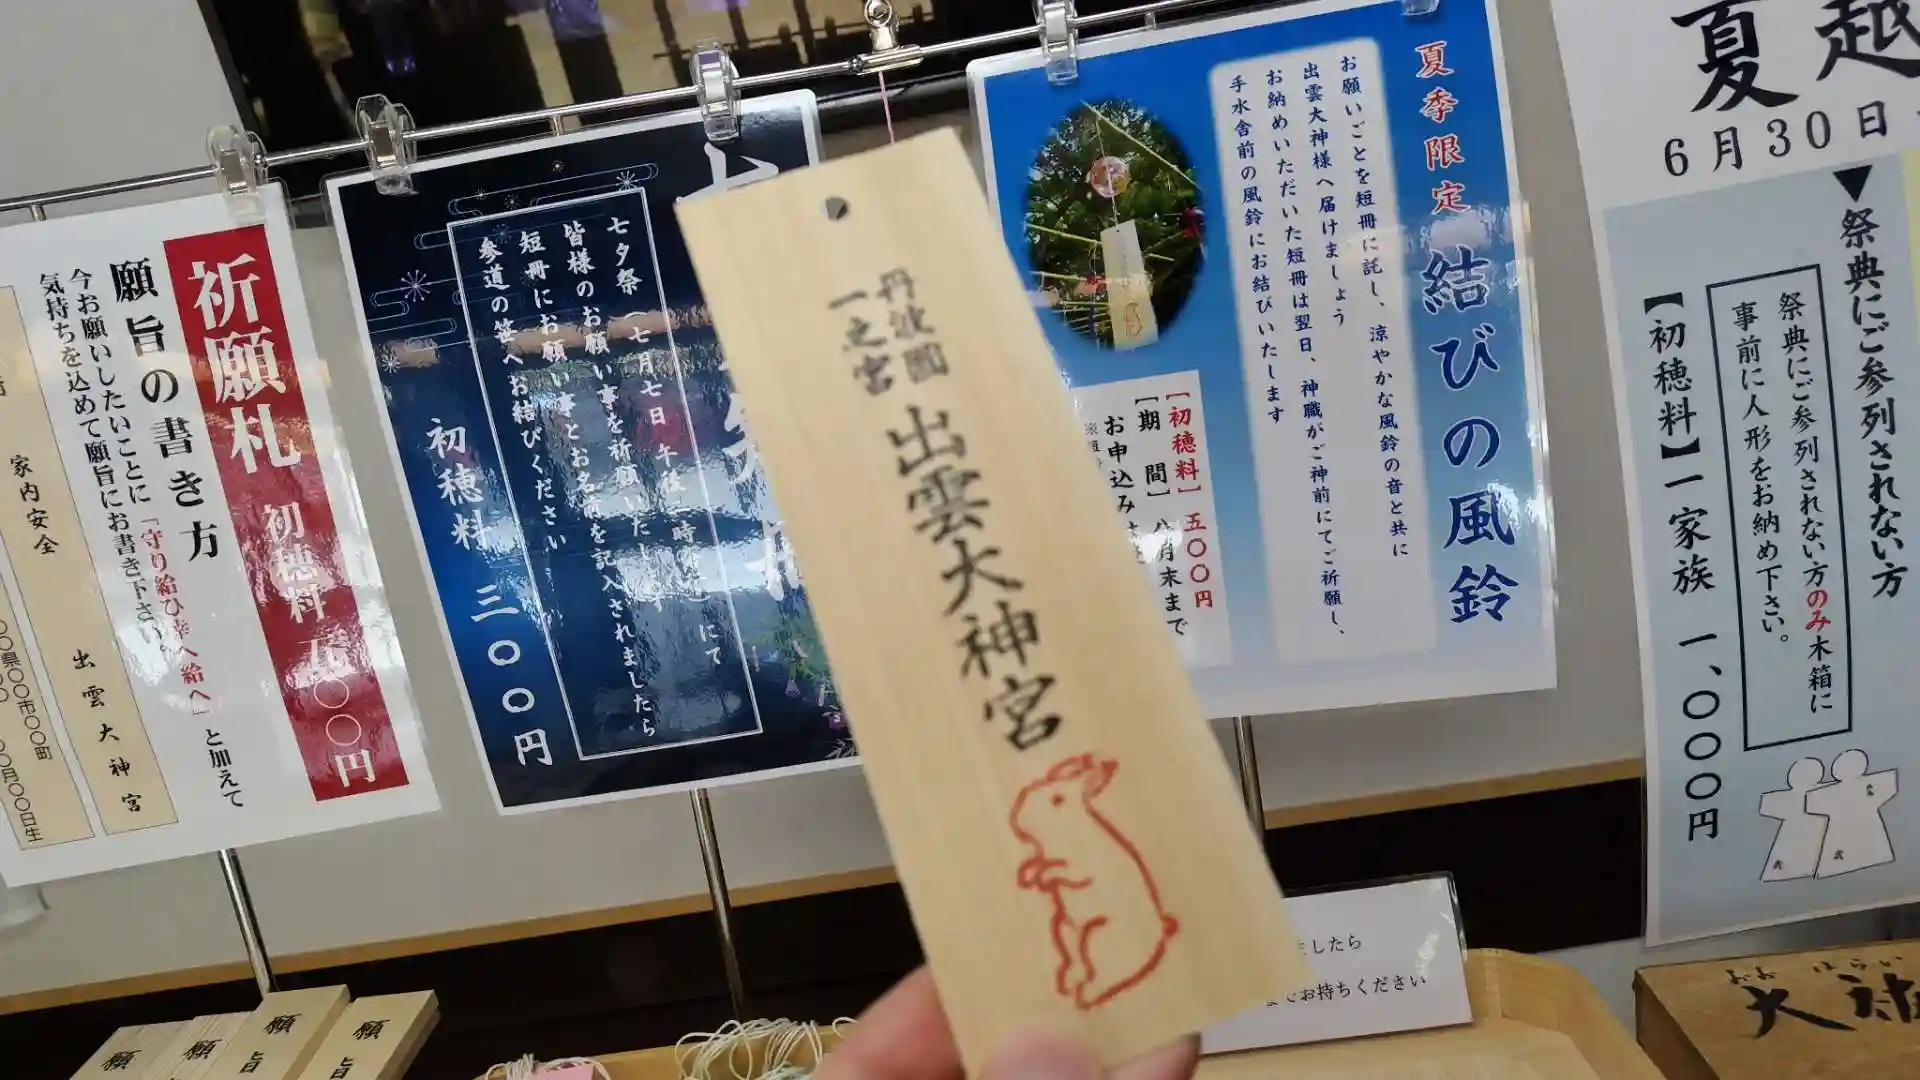 夏越
6月30日
▼祭典にご参列されない方
祭典にご参列されない方のみ木箱に
事前に人形をお納め下さい。
【初穂料】一家族 一、〇〇〇円
夏季限定 結びの風鈴
お願いごとを短冊に託し、涼やかな風鈴の音と共に
出雲大神様へ届けましょう
お納めいただいた短冊は翌日、神職がご神前にてご祈願し、
手水舎前の風鈴にお結びいたします
[初穂料] 五〇〇円
[期 間] 八月末まで
お申込み
丹波國
一之宮
出雲大神宮
七夕祭（七月七日 午後
にて
皆様のお願い事を祈願いたします
短冊にお願い事とお名前を記入されましたら
参道の笹へお結びください
初穂料 三〇〇円
祈願札 初穂料 五〇〇円
願旨の書き方
今お願いしたいことに「守り給ひ幸へ給へ」と加えて
気持ちを込めて願旨にお書き下さい。
出雲大神宮
家内安全
〇〇県〇〇市〇〇町
〇〇月〇〇日生
願旨
願旨
願
願
ましたら
お持ちください
おお はらい
大祓